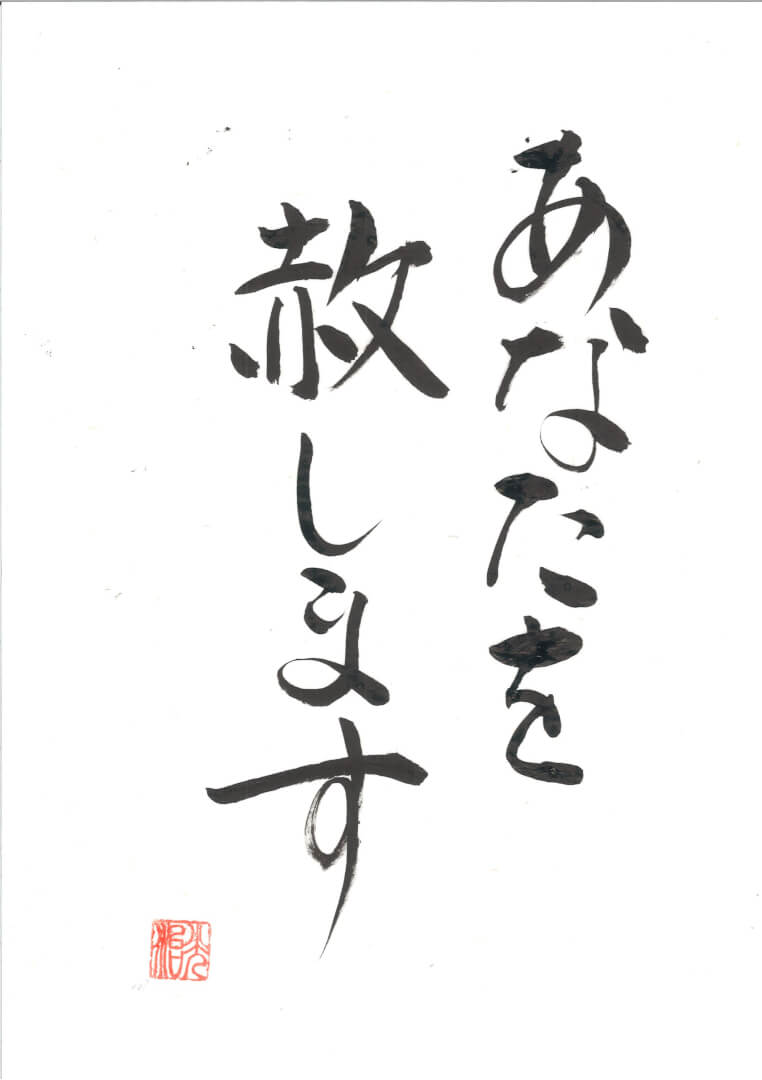 あなたを
赦します